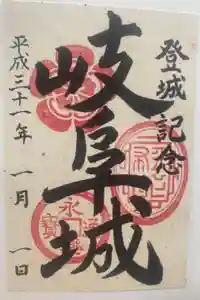 登城記念
岐阜城
平成三十一年 一月 一日
永
寶